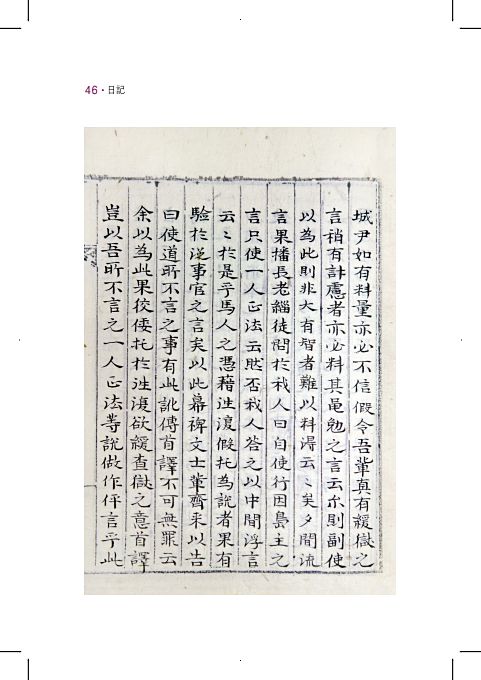 46 · 日記
城尹如有料量亦必不信假令吾輩真有緩獄之
言稍有計慮者亦必料其黽勉之言云尔則副使
以為此則非大有智者難以料得云〻矣夕間流
言果播長老緇徒問於我人曰自使行因島主之
言只使一人正法云然否我人答之以中間浮言
云〻於是乎馬人之憑藉往復假托為説者果有
驗於從事官之言矣以此幕裨文士輩齊来以告
曰使道所不言之事有此訛傳首譯不可無罪云
余以為此果狡倭托於往復欲緩查獄之意首譯
豈以吾所不言之一人正法等說做作伻言乎此